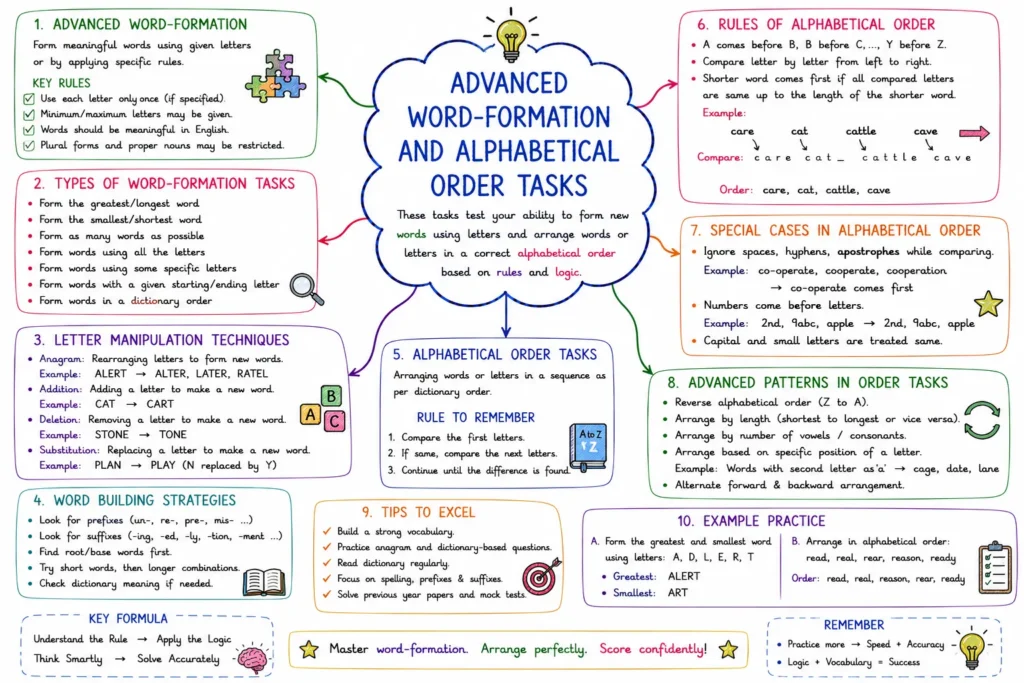 ADVANCED
WORD-FORMATION
AND ALPHABETICAL
ORDER TASKS
These tasks test your ability to form new
words using letters and arrange words or
letters in a correct alphabetical order
based on rules and logic.
1. ADVANCED WORD-FORMATION
Form meaningful words using given letters
or by applying specific rules.
KEY RULES
Use each letter only once (if specified).
Minimum/maximum letters may be given.
Words should be meaningful in English.
Plural forms and proper nouns may be restricted.
2. TYPES OF WORD-FORMATION TASKS
• Form the greatest/longest word
• Form the smallest/shortest word
• Form as many words as possible
• Form words using all the letters
• Form words using some specific letters
• Form words with a given starting/ending letter
• Form words in a dictionary order
3. LETTER MANIPULATION TECHNIQUES
• Anagram: Rearranging letters to form new words.
Example: ALERT → ALTER, LATER, RATEL
• Addition: Adding a letter to make a new word.
Example: CAT → CART
• Deletion: Removing a letter to make a new word.
Example: STONE → TONE
• Substitution: Replacing a letter to make a new word.
Example: PLAN → PLAY (N replaced by Y)
B
A
C
4. WORD BUILDING STRATEGIES
• Look for prefixes (un-, re-, pre-, mis- ...)
• Look for suffixes (-ing, -ed, -ly, -tion, -ment ...)
• Find root/base words first.
• Try short words, then longer combinations.
• Check dictionary meaning if needed.
5. ALPHABETICAL ORDER TASKS
Arranging words or letters in a sequence as
per dictionary order.
RULE TO REMEMBER
1. Compare the first letters.
2. If same, compare the next letters.
3. Continue until the difference is found.
A to Z
6. RULES OF ALPHABETICAL ORDER
• A comes before B, B before C, ..., Y before Z.
• Compare letter by letter from left to right.
• Shorter word comes first if all compared letters
are same up to the length of the shorter word.
Example:
care cat cattle cave
Compare: c a r e c a t _ c a t t l e c a v e
Order: care, cat, cattle, cave
7. SPECIAL CASES IN ALPHABETICAL ORDER
• Ignore spaces, hyphens, apostrophes while comparing.
Example: co-operate, cooperate, cooperation
→ co-operate comes first
• Numbers come before letters.
Example: 2nd, 9abc, apple → 2nd, 9abc, apple
• Capital and small letters are treated same.
8. ADVANCED PATTERNS IN ORDER TASKS
• Reverse alphabetical order (Z to A).
• Arrange by length (shortest to longest or vice versa).
• Arrange by number of vowels / consonants.
• Arrange based on specific position of a letter.
Example: Words with second letter as 'a' → cage, date, lane
• Alternate forward & backward arrangement.
9. TIPS TO EXCEL
✓ Build a strong vocabulary.
✓ Practice anagram and dictionary-based questions.
✓ Read dictionary regularly.
✓ Focus on spelling, prefixes & suffixes.
✓ Solve previous year papers and mock tests.
10. EXAMPLE PRACTICE
A. Form the greatest and smallest word
using letters: A, D, L, E, R, T
• Greatest: ALERT
• Smallest: ART
B. Arrange in alphabetical order:
read, real, rear, reason, ready
Order: read, real, reason, rear, ready
KEY FORMULA
Understand the Rule → Apply the Logic
Think Smartly → Solve Accurately
Master word-formation. Arrange perfectly. Score confidently!
REMEMBER
• Practice more → Speed + Accuracy
• Logic + Vocabulary = Success